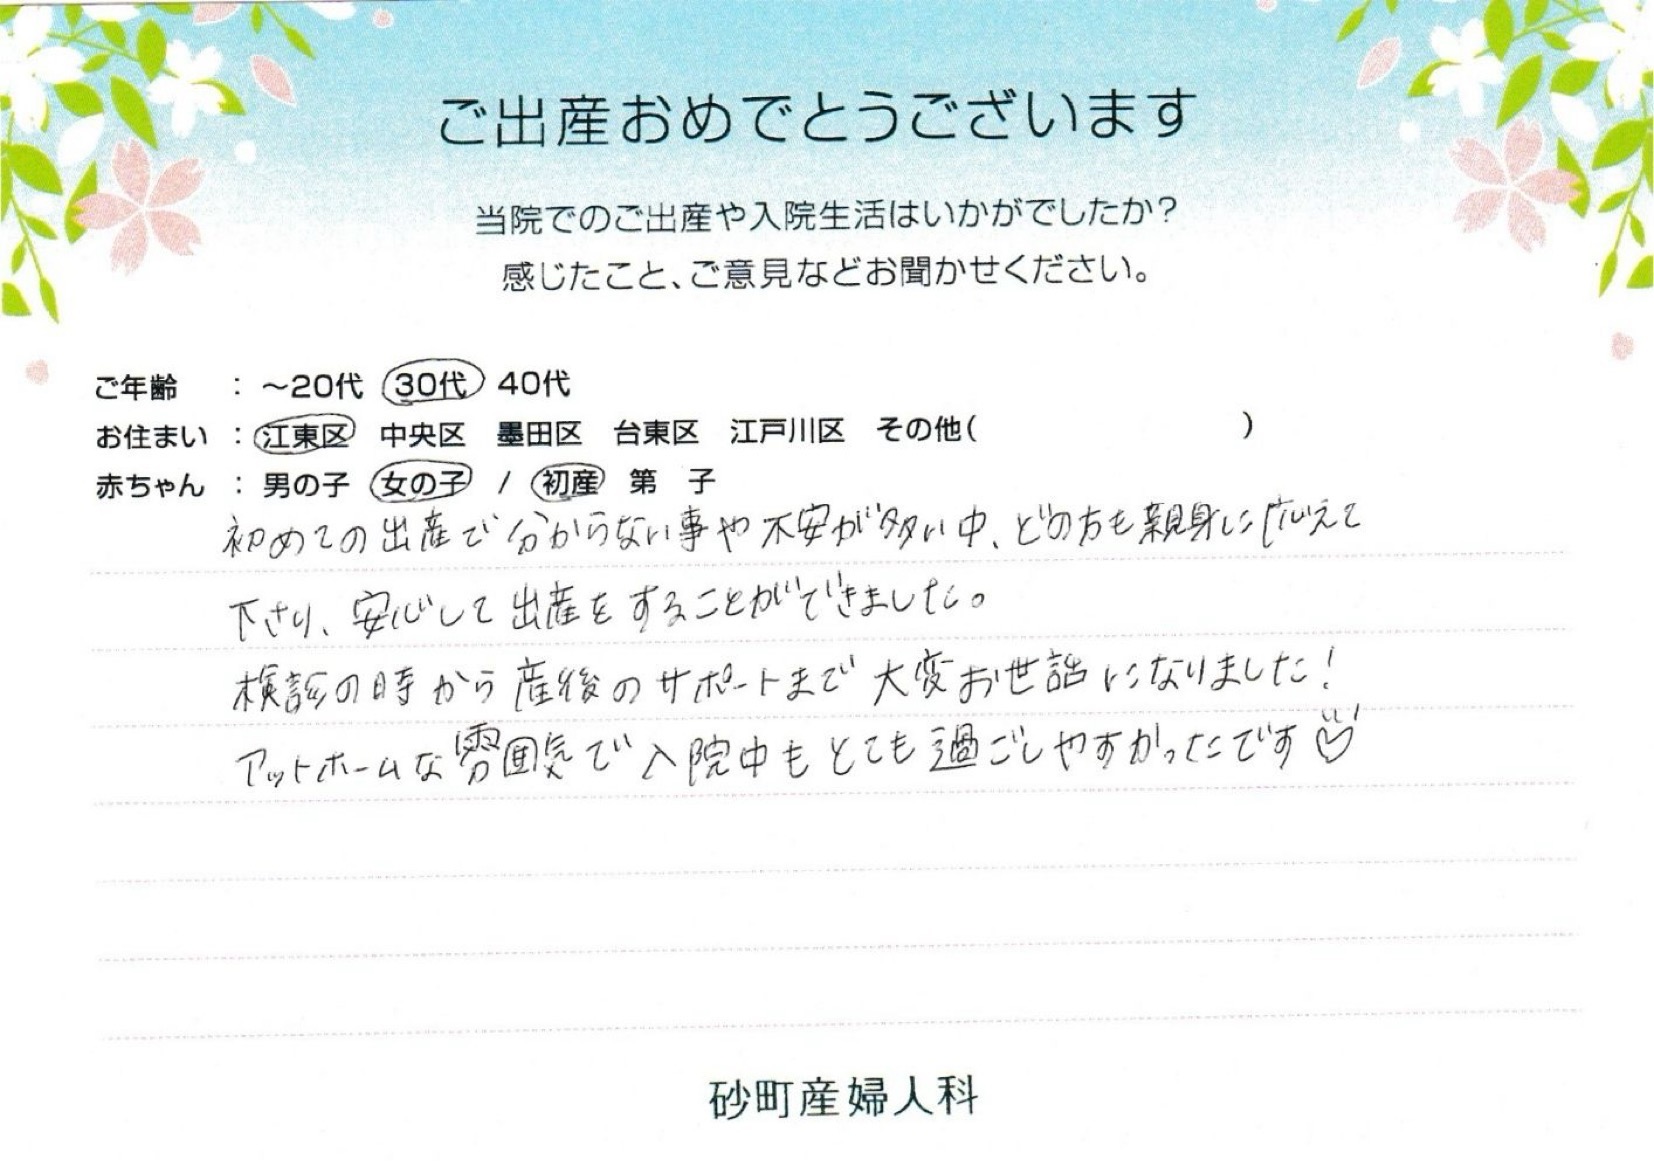 ご出産おめでとうございます
当院でのご出産や入院生活はいかがでしたか?
感じたこと、ご意見などお聞かせください。
ご年齢 : ~20代 30代 40代
お住まい : 江東区 中央区 墨田区 台東区 江戸川区 その他( )
赤ちゃん : 男の子 女の子 / 初産 第 子
初めての出産で分からない事や不安が多い中、どの方も親身に応えて
下さり、安心して出産をすることができました。
検診の時から産後のサポートまで大変お世話になりました!
アットホームな雰囲気で入院中もとても過ごしやすかったです♡
砂町産婦人科